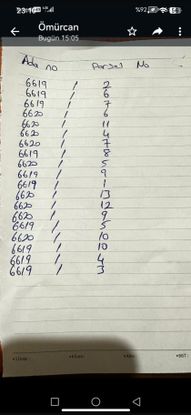 23:10
%92
Ömürcan
Bugün 15:05
Ada no / Parsel No
6619 / 2
6619 / 6
6619 / 7
6620 / 6
6620 / 11
6620 / 4
6620 / 7
6619 / 8
6620 / 5
6619 / 9
6619 / 1
6620 / 13
6620 / 12
6620 / 9
6619 / 5
6620 / 10
6619 / 10
6619 / 4
6619 / 3